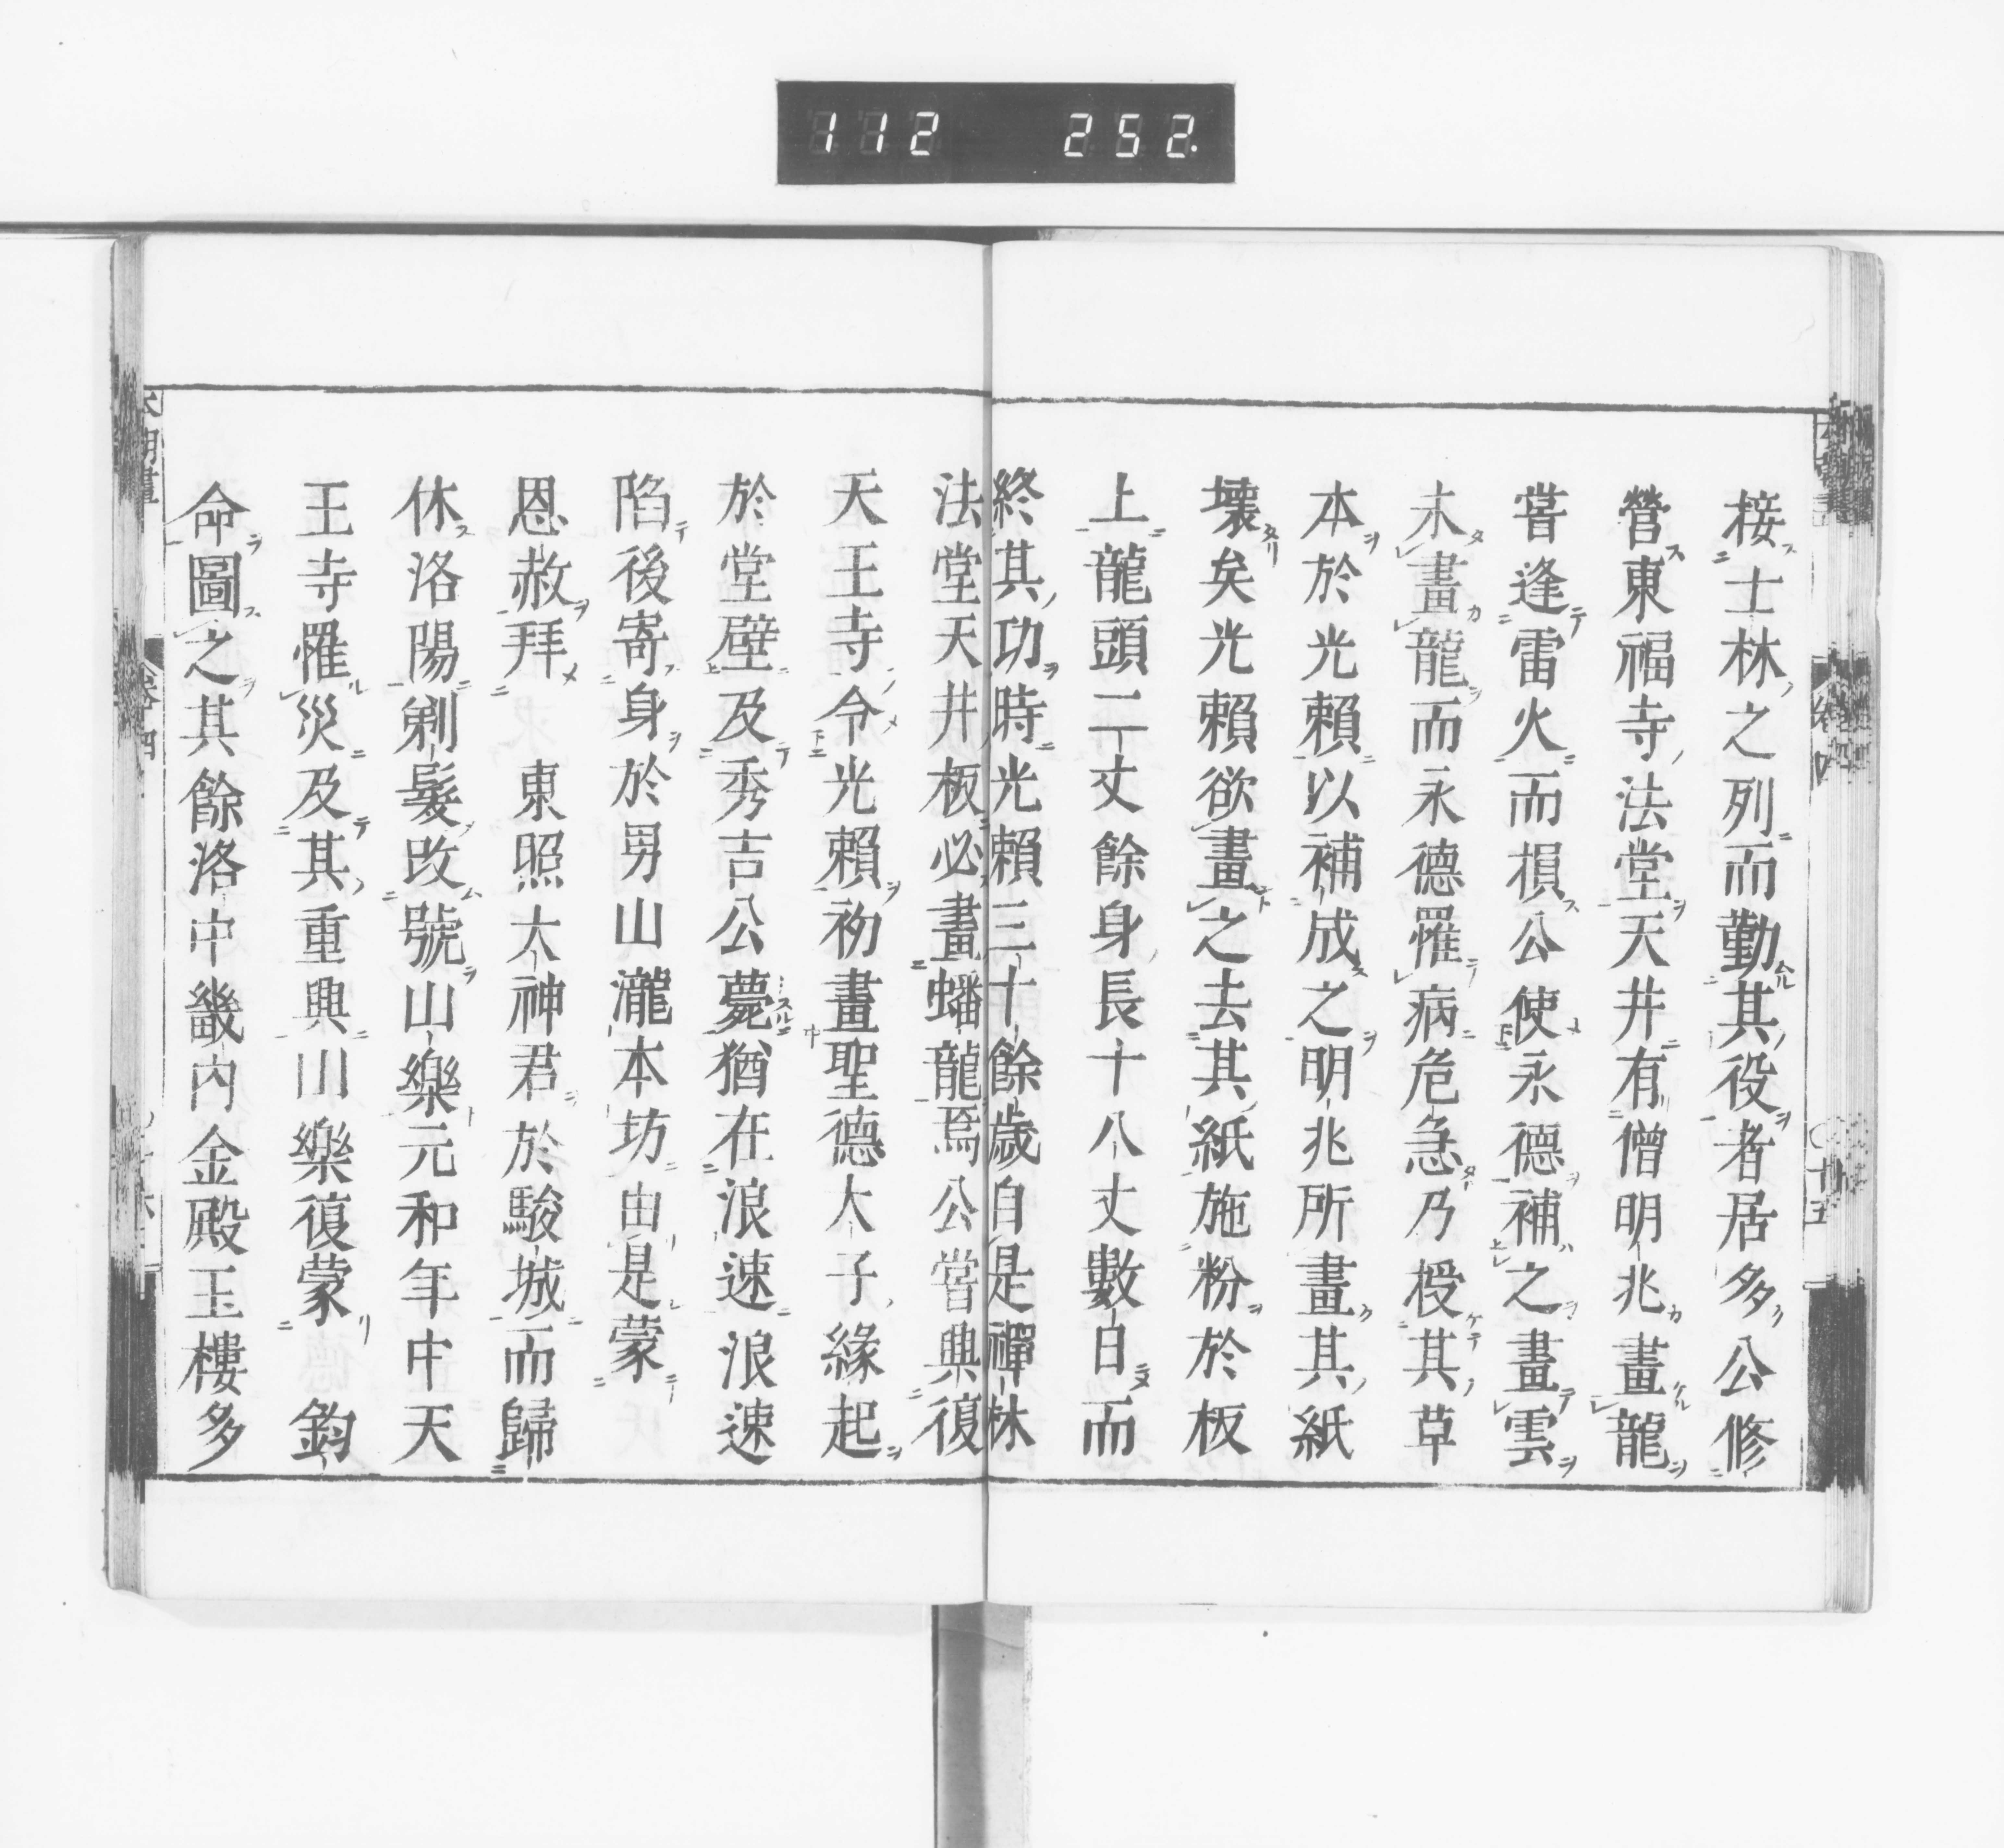 112 252.
接士林之列而勤其役者居多公修
營東福寺法堂天井有僧明兆畫龍
嘗逢雷火而損公使永德補之畫雲
未畫龍而永德罹病危急乃授其草
本於光賴以補成之明兆所畫其紙
壞矣光賴欲畫之去其紙施粉於板
上龍頭二丈餘身長十八丈數日而
終其功時光賴三十餘歲自是禪林
法堂天井板必畫蟠龍焉公嘗興復
天王寺令光賴初畫聖德太子緣起
於堂壁及秀吉公薨猶在浪速浪速
陷後寄身於男山瀧本坊由是蒙
恩赦拜 東照大神君於駿城而歸
休洛陽剃髮改號山樂元和年中天
王寺罹災及其重興山樂復蒙 鈞
命圖之其餘洛中畿內金殿玉樓多